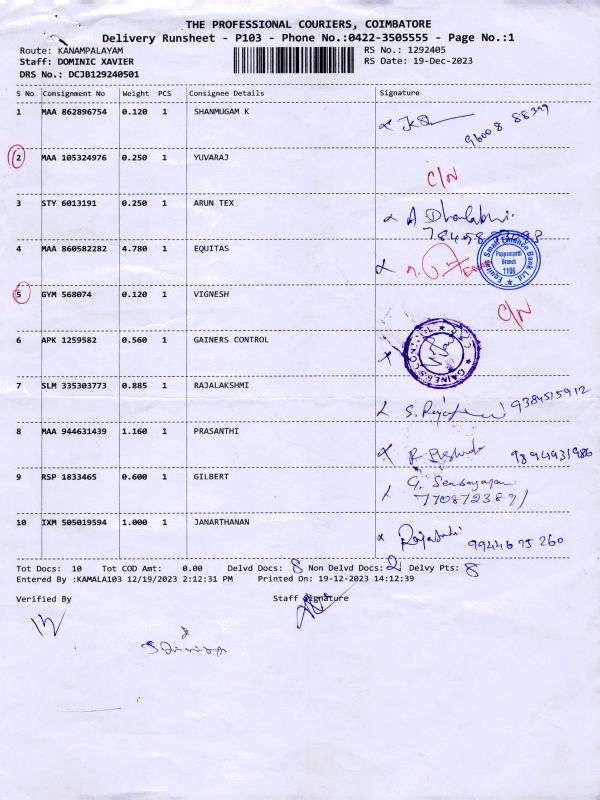 THE PROFESSIONAL COURIERS, COIMBATORE
Delivery Runsheet - P103 - Phone No.:0422-3505555 - Page No.:1
Route: KANAMPALAYAM RS No.: 1292405
Staff: DOMINIC XAVIER RS Date: 19-Dec-2023
DRS No.: DCJB129240501
S No Consignment No Weight PCS Consignee Details Signature
1 MAA 862896754 0.120 1 SHANMUGAM K
96008 88399
2 MAA 105324976 0.250 1 YUVARAJ
C/N
3 STY 6013191 0.250 1 ARUN TEX
A Dhanalakshmi
4 MAA 860582282 4.780 1 EQUITAS
Equitas Small Finance Bank Ltd.
Pappampatti
Branch
1106
5 GYM 568074 0.120 1 VIGNESH
C/N
6 APK 1259582 0.560 1 GAINERS CONTROL
GAINERS CONTROL
7 SLM 335303773 0.885 1 RAJALAKSHMI
9384515912
8 MAA 944631439 1.160 1 PRASANTHI
9894931986
9 RSP 1833465 0.600 1 GILBERT
7708723891
10 IXM 505019594 1.000 1 JANARTHANAN
9944695260
Tot Docs: 10 Tot COD Amt: 0.00 Delvd Docs: 8 Non Delvd Docs: 2 Delvy Pts: 8
Entered By :KAMALA103 12/19/2023 2:12:31 PM Printed On: 19-12-2023 14:12:39
Verified By Staff Signature